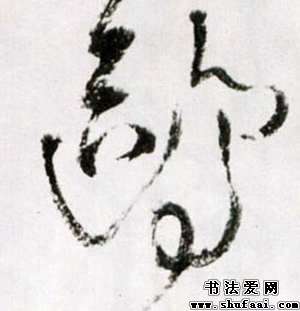 鷗
书法爱网
www.shufaai.com